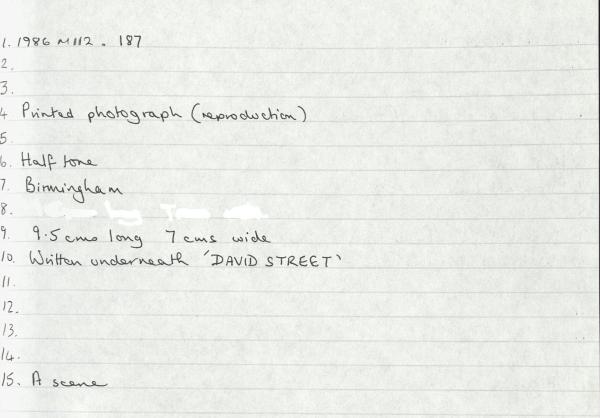 1. 1986 M112. 187
2.
3.
4 Printed photograph (reproduction)
5
6. Half tone
7. Birmingham
8.
9. 9.5 cms long 7 cms wide
10. Written underneath 'DAVID STREET'
11.
12.
13.
14.
15. A scene